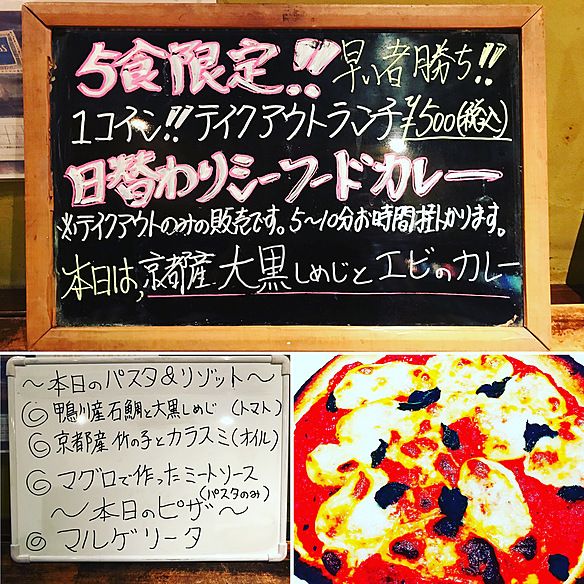 5食限定!! 早い者勝ち!!
1コイン!! テイクアウトランチ ¥500(税込)
日替わりシーフードカレー
※テイクアウトのみの販売です。5〜10分お時間掛かります。
本日は,京都産 大黒しめじとエビのカレー
〜本日のパスタ&リゾット〜
◎ 鴨川産石鯛と大黒しめじ (トマト)
◎ 京都産 竹の子とカラスミ(オイル)
◎ マグロで作ったミートソース
(パスタのみ)
〜本日のピザ〜
◎ マルゲリータ